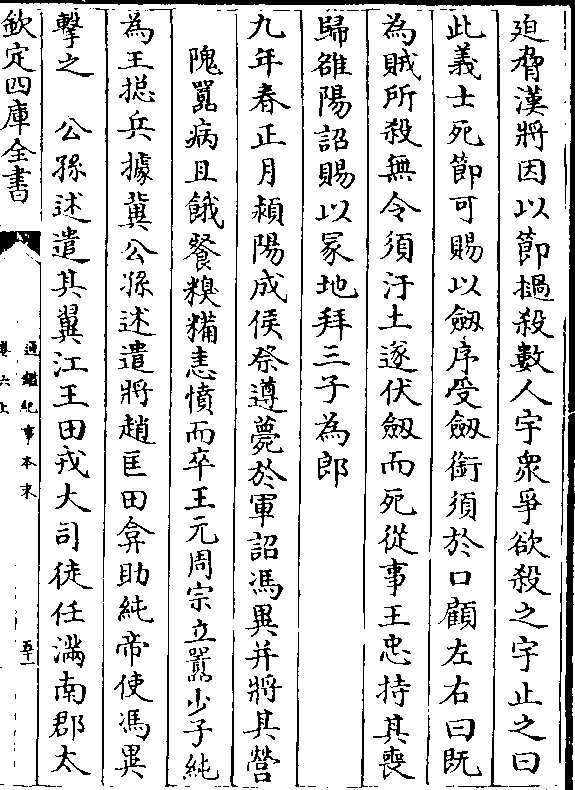 迫脅漢將因以節撾殺數人宇衆爭欲殺之宇止之曰
此義士死節可賜以劔序受劔銜須於口顧左右曰既
為賊所殺無令須汙土遂伏劔而死從事王忠持其喪
歸雒陽詔賜以冢地拜三子為郎
九年春正月潁陽成侯祭遵薨於軍詔馮異并將其營
隗囂病且餓餐糗糒恚憤而卒王元周宗立囂少子純
為王揔兵據冀公孫述遣將趙匡田弇助純帝使馮異
擊之 公孫述遣其翼江王田戎大司徒任滿南郡太
欽定四庫全書
通鑑紀事本末
卷六上